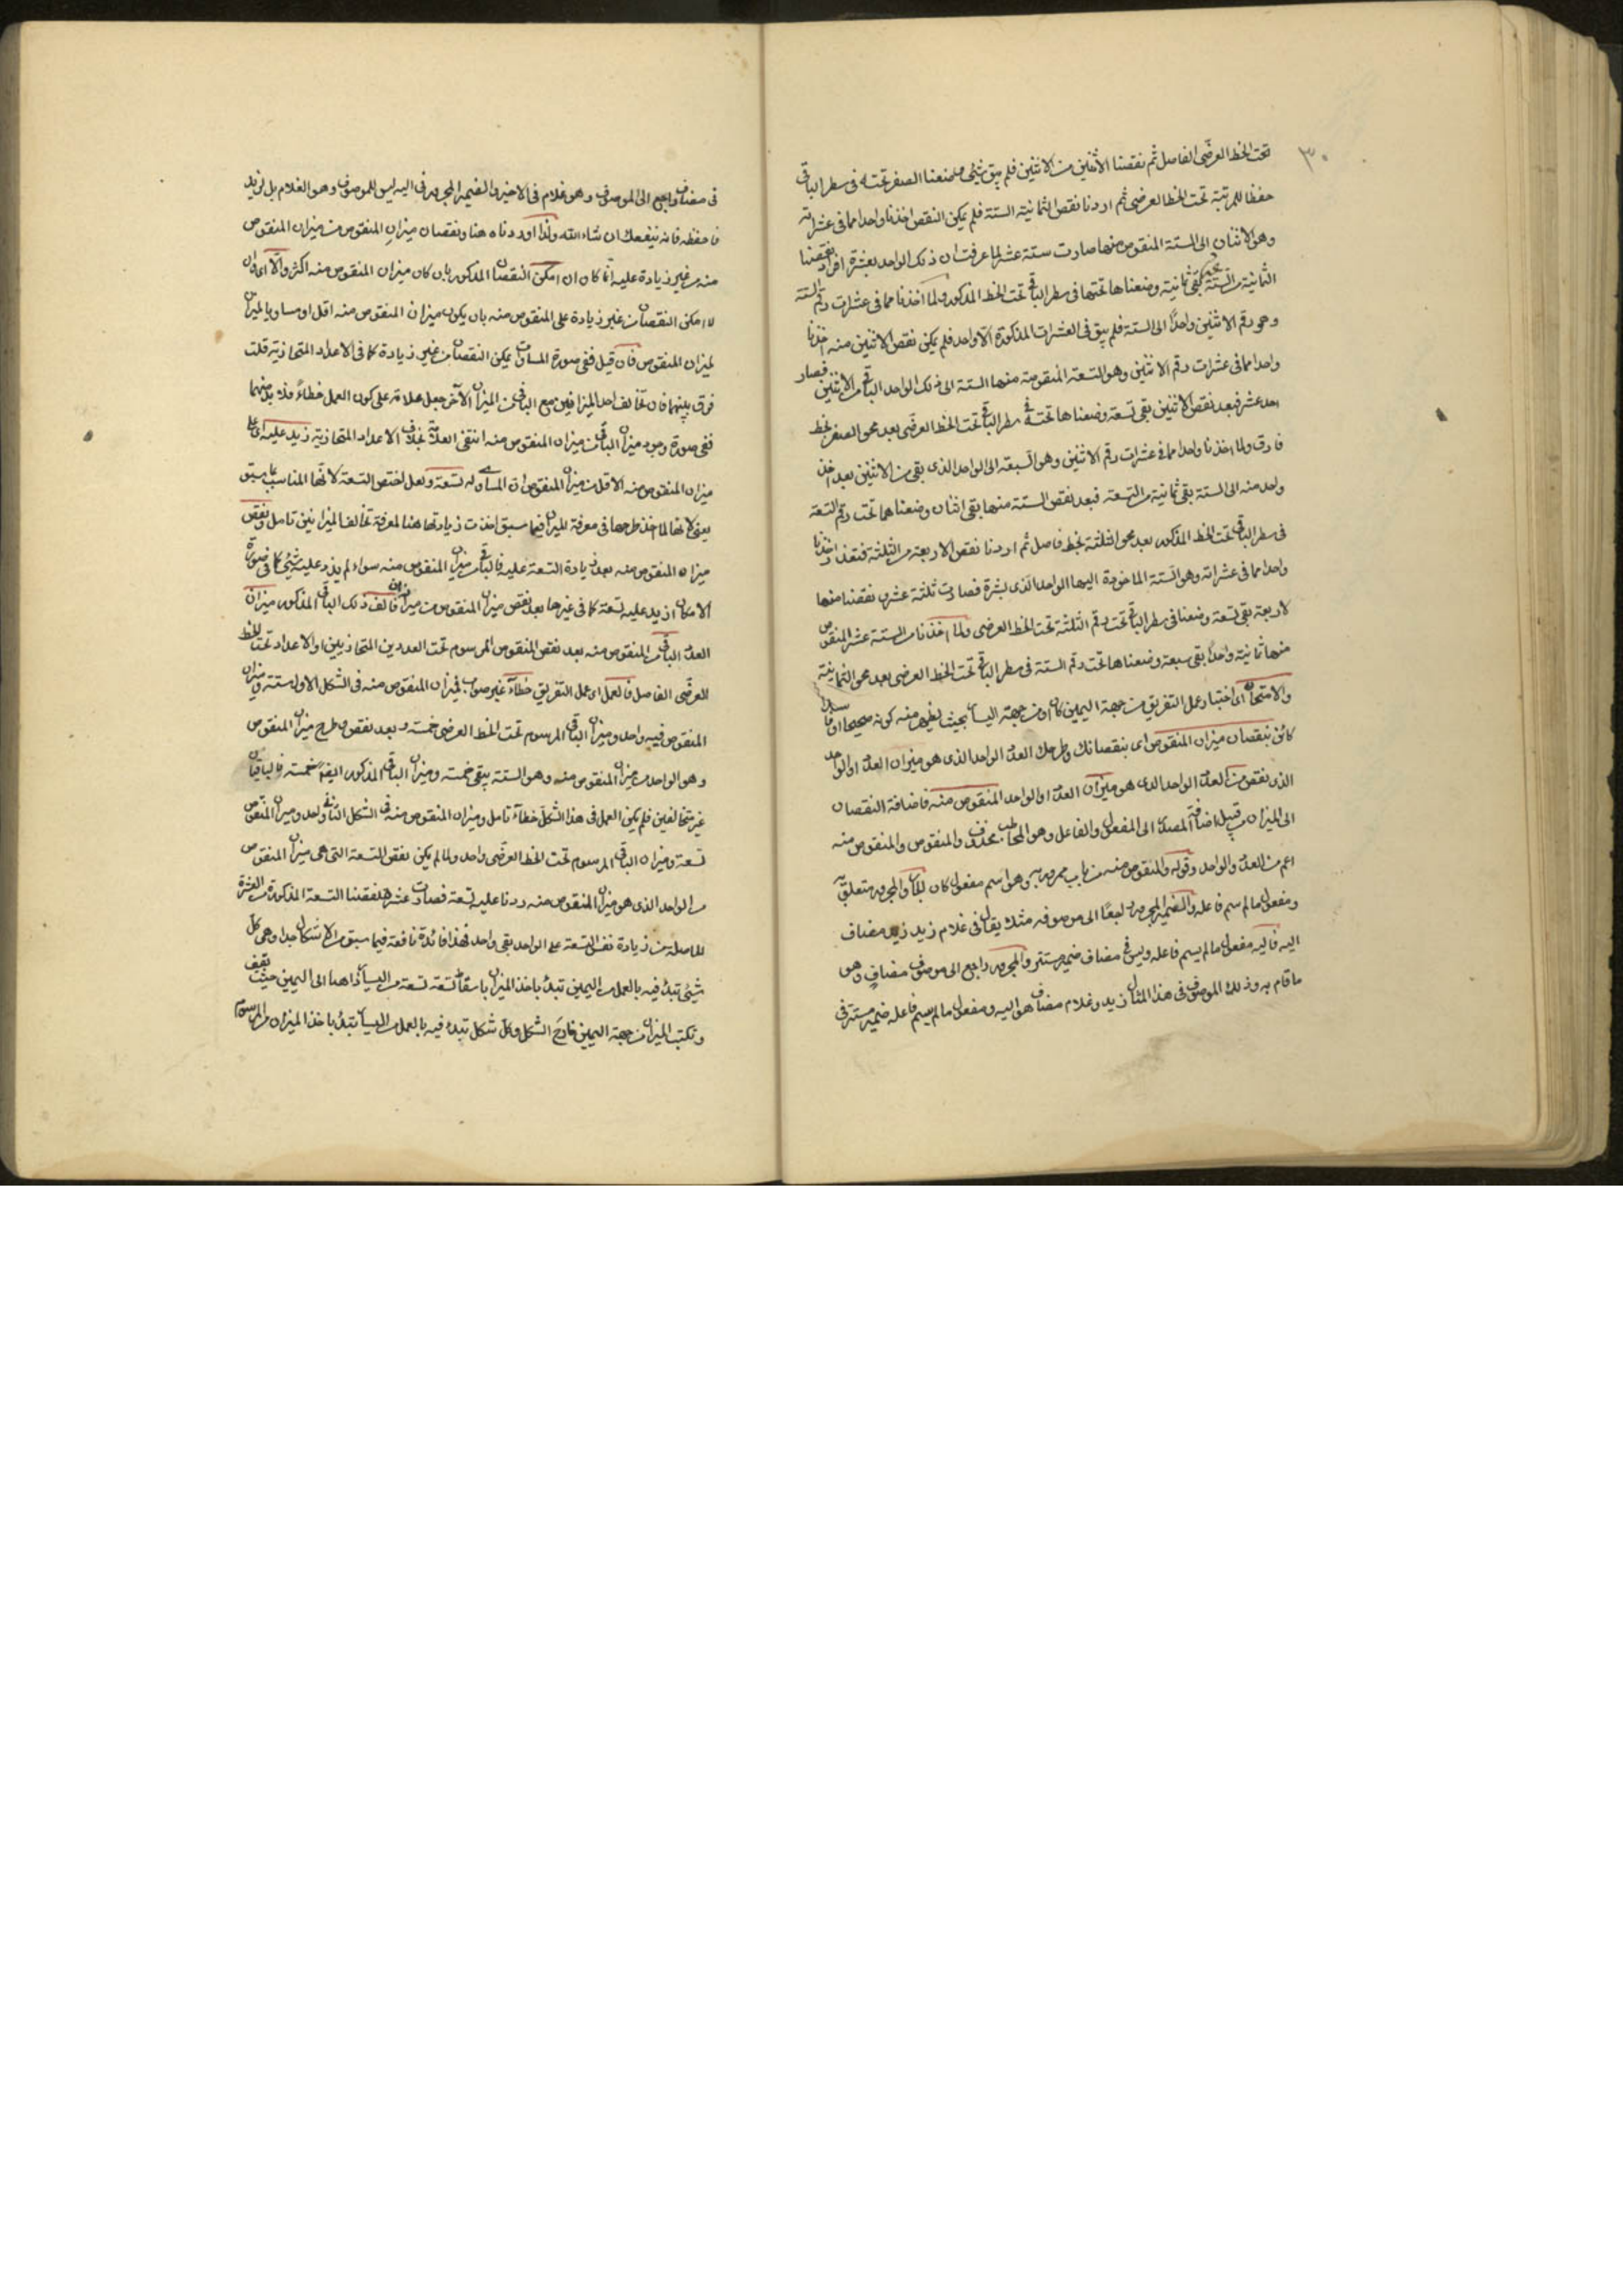 ٣٠
تحت الخط العرضى الفاصل ثم نقصنا الاثنين من الاثنين فلم يبق شئ فوضعنا الصفر تحته فى سطر الباقى
حفظا للمرتبة تحت الخط العرضى ثم اردنا نقص الثمانية الستة فلم يمكن النقص اخذنا واحدا مما فى عشراته
وهو الاثنان الى الستة المنقوص منها صارت ستة عشر لما عرفت ان ذلك الواحد بعشرة افراد نقصنا
الثمانية من الستة عشر بقى ثمانية وضعناها تحتها فى سطر الباقى تحت الخط المذكور ولما اخذنا مما فى عشرات رقم الستة
وهى رقم الاثنين واحدًا الى الستة فلم يبق فى العشرات المذكورة الا واحد فلم يمكن نقص الاثنين منه اخذنا
واحدا مما فى عشرات رقم الاثنين وهو التسعة المنقوصة منها الستة الى ذلك الواحد الباقى من الاثنين فصار
احد عشر فبعد نقص الاثنين بقى تسعة وضعناها تحته فى سطر الباقى تحت الخط العرضى بعد محو الصفر بخط
فارق ولما اخذنا واحدا مما فى عشرات رقم الاثنين وهو التسعة الى الواحد الذى بقى من الاثنين بعد اخذ
واحد منه الى الستة بقى ثمانية من التسعة فبعد نقص الستة منها بقى اثنان وضعناهما تحت رقم التسعة
فى سطر الباقى تحت الخط المذكور بعد محو الثلثة بخط فاصل ثم اردنا نقص الاربعة من الثلثة فتعذر اخذنا
واحدا مما فى عشراته وهو الستة الماخوذة اليها الواحد الذى بعشرة فصارت ثلثة عشر نقصنا منها
لاربعة بقى تسعة وضعنا فى سطر الباقى تحت رقم الثلثة تحت الخط العرضى ولما اخذنا من الستة عشر المنقوص
منها ثمانية واحدًا بقى سبعة وضعناها تحت رقم الستة فى سطر الباقى تحت الخط العرضى بعد محو الثمانية
والامتحان اى اختبار عمل التفريق من جهة اليمين كان او من جهة اليسار بحيث يظهر منه كونه صحيحا او فاسدا
كائن بنقصان ميزان المنقوص اى بنقصانك وطرحك العدد الواحد الذى هو ميزان العدد او الواحد
الذى نقص من العدد الواحد الذى هو ميزان العدد او الواحد المنقوص منه فاضافة النقصان
الى الميزان من قبيل اضافة المصدر الى المفعول والفاعل وهو المخاطب محذوف والمنقوص والمنقوص منه
اعم من العدد والواحد وقوله والمنقوص منه من باب ممرور به وهو اسم مفعول كان للجار والمجرور متعلق به
ومفعول ما لم يسم فاعله والضمير المجرور راجعًا الى موصوفه مثلا يقال فى غلام زيد زيد مضاف
اليه فاليه مفعول ما لم يسم فاعله وليس فى مضاف ضمير مستتر والمجرور راجع الى موصوف مضاف وهو
ما قام به وذلك الموصوف فى هذا المثال زيد وغلام مضاف هو اليه ومفعول ما لم يسم فاعله ضمير مستتر فى
فى مضاف راجع الى الموصوف وهو غلام فى الاخير والضمير المجرور فى اليه ليس للموصوف وهو الغلام بل لزيد
فاحفظه فانه ينفعك ان شاء الله ولذا اوردناه هنا ونقصان ميزان المنقوص من ميزان المنقوص
منه من غير زيادة عليه انما كان ان امكن النقصان المذكور بان كان ميزان المنقوص منه اكثر والا اى وان
لا امكن النقصان من غير زيادة على المنقوص منه بان يكون ميزان المنقوص منه اقل او مساويا لميزان
لميزان المنقوص فان قيل ففى صورة المساوات يمكن النقصان من غير زيادة كما فى الاعداد المتحاذية قلت
فرق بينهما فان تخالف احد الميزانين مع الباقى من الميزان الآخر جعل علامة على كون العمل خطاءً فلا بد منهما
ففى صورة وجود ميزان الباقى من ميزان المنقوص منه انتفى العلامة بخلاف الاعداد المتحاذية زيد عليه اى على
ميزان المنقوص منه الاقل من ميزان المنقوص او المساوى له تسعة ولعل اختص التسعة لانها المناسب بما سبق
يعنى لانها لما اخذ طرحها فى معرفة الميزان فيما سبق اخذت زيادتها هنا لمعرفة تخالف الميزانين تامل ونقص
ميزان المنقوص منه بعد زيادة التسعة عليه فالباقى من ميزان المنقوص منه سواء لم يزد عليه شئ كما فى صورة
الامكان او زيد عليه تسعة كما فى غيرها بعد نقص ميزان المنقوص من ميزانه ان خالف ذلك الباقى المذكور ميزان
العدد الباقى من المنقوص منه بعد نقص المنقوص المرسوم تحت العددين المتحاذيين او الاعداد تحت الخط
العرضى الفاصل فالعمل اى عمل التفريق خطاء غير صواب فميزان المنقوص منه فى الشكل الاول ستة وميزان
المنقوص فيه واحد وميزان الباقى المرسوم تحت الخط العرضى خمسة وبعد نقص وطرح ميزان المنقوص
وهو الواحد من ميزان المنقوص منه وهو الستة يبقى خمسة وميزان الباقى المذكور ايضا خمسة فالباقيان
غير متخالفين فلم يكن العمل فى هذا الشكل خطاء تامل وميزان المنقوص منه فى الشكل الثانى واحد وميزان المنقوص
تسعة وميزان الباقى المرسوم تحت الخط العرضى واحد ولما لم يكن نقص التسعة التى هى ميزان المنقوص
من الواحد الذى هو ميزان المنقوص منه زدنا عليه تسعة فصارت عشرة فنقصنا التسعة المذكورة من العشرة
الحاصلة من زيادة نفس التسعة على الواحد بقى واحد فهذا فائدة نافعة فيما سبق من الاشكال جدا وهى كل
شئ تبدأ فيه بالعمل من اليمين تبدأ باخذ الميزان باسقاط تسعة تسعة من اليسار ذاهبا الى اليمين حيث تقف
وتكتب الميزان من جهة اليمين خارج الشكل وكل شكل تبدأ فيه بالعمل من اليسار تبدأ باخذ الميزان من المرسوم